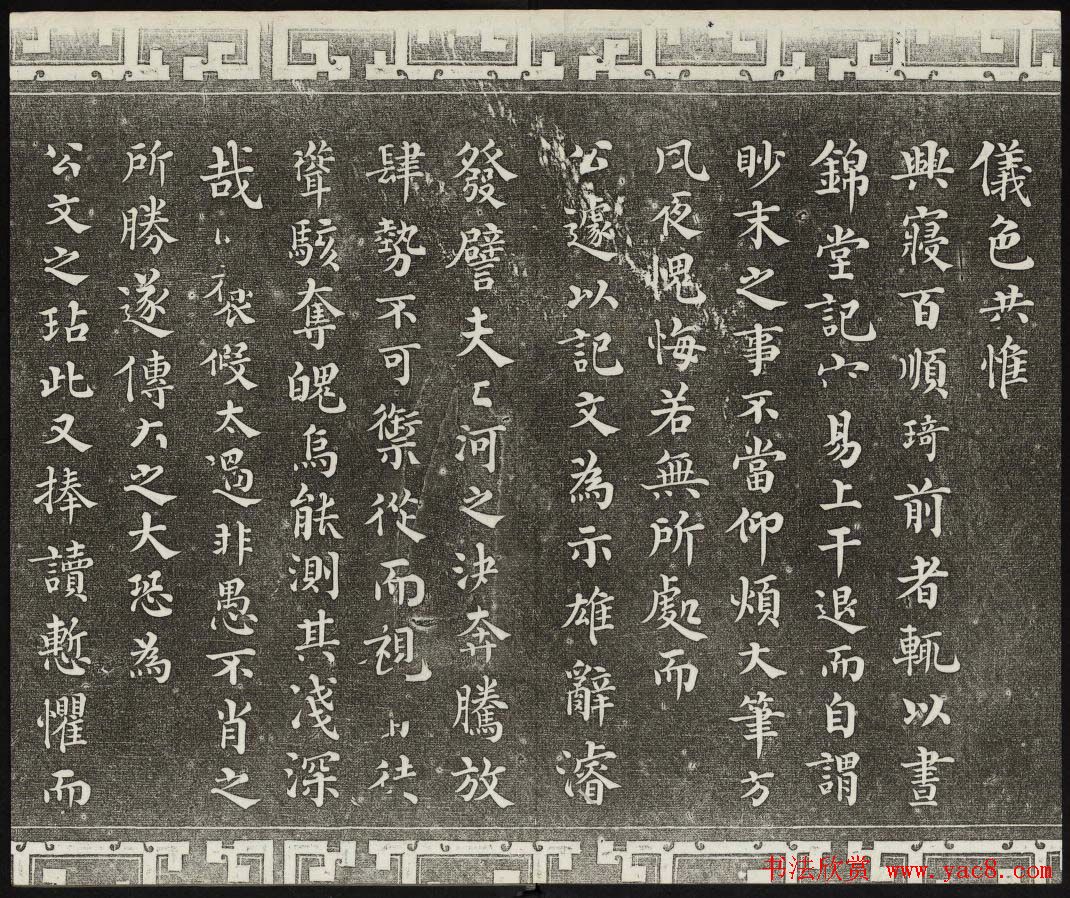 儀色共惟
興寢百順琦前者輒以晝
錦堂記易上干退而自謂
眇末之事不當仰煩大筆方
夙夜愧悔若無所處而
公遽以記文為示雄辭濬
發譬夫河之決奔騰放
肆勢不可禦從而視
聳駭奪魄烏能測其淺深
哉假太過非愚不肖之
所勝遂傳之大恐為
公文之玷此又捧讀慙懼而
书法欣赏 www.yac8.com